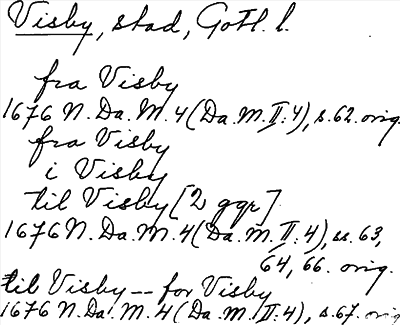 Visby, stad, Gotl. l.
fra Visby
1676 N. Da. M. 4 (Da. M. II: 4), s. 62. orig.
fra Visby
i Visby
til Visby [2 ggr].
1676 N. Da. M. 4 (Da. M. II: 4), ss. 63,
64, 66. orig.
til Visby -- for Visby
1676 N. Da. M. 4 (Da. M. II: 4), s. 67. orig